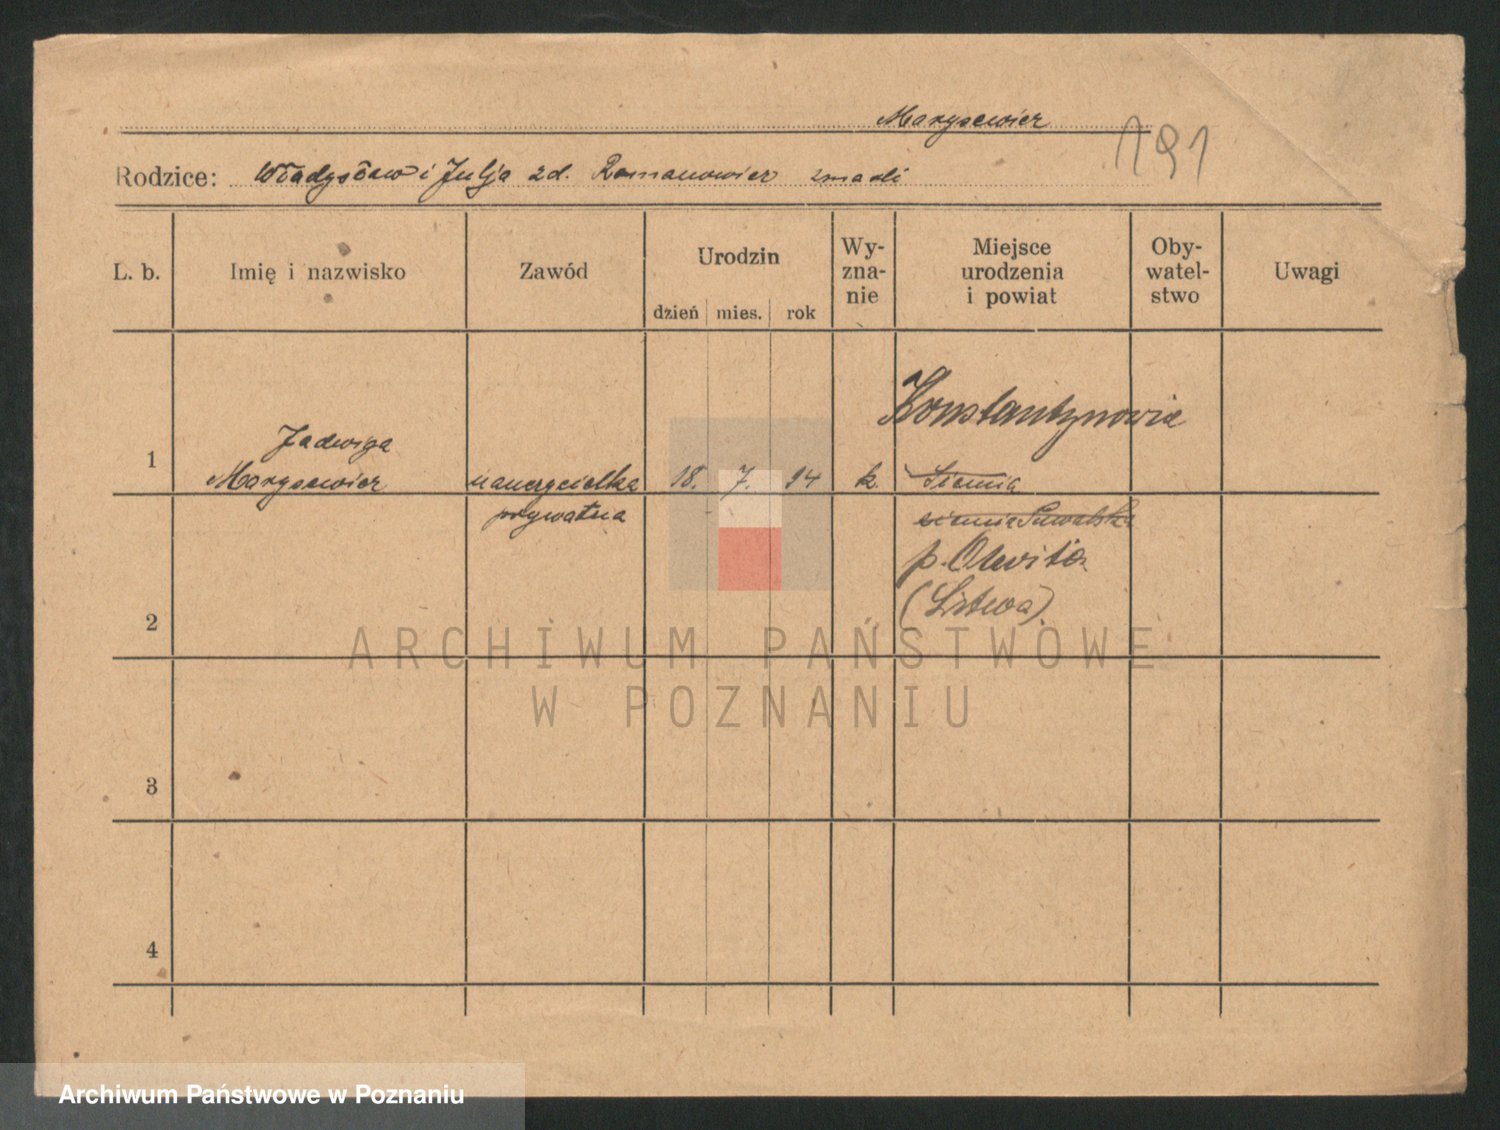 Marysewicz
191
Rodzice: Władysław i Julja zd. Romanowicz zmarli
L. b.
Imię i nazwisko
Zawód
Urodzin
dzień mies. rok
Wy-
zna-
nie
Miejsce
urodzenia
i powiat
Oby-
watel-
stwo
Uwagi
1
Jadwiga
Marysewicz
nauczycielka
prywatna
18. 7. 94
k.
Konstantynowie
Siemia
ziemia Suwalska
p. Olwita
(Litwa).
2
3
4
ARCHIWUM PAŃSTWOWE
W POZNANIU
Archiwum Państwowe w Poznaniu